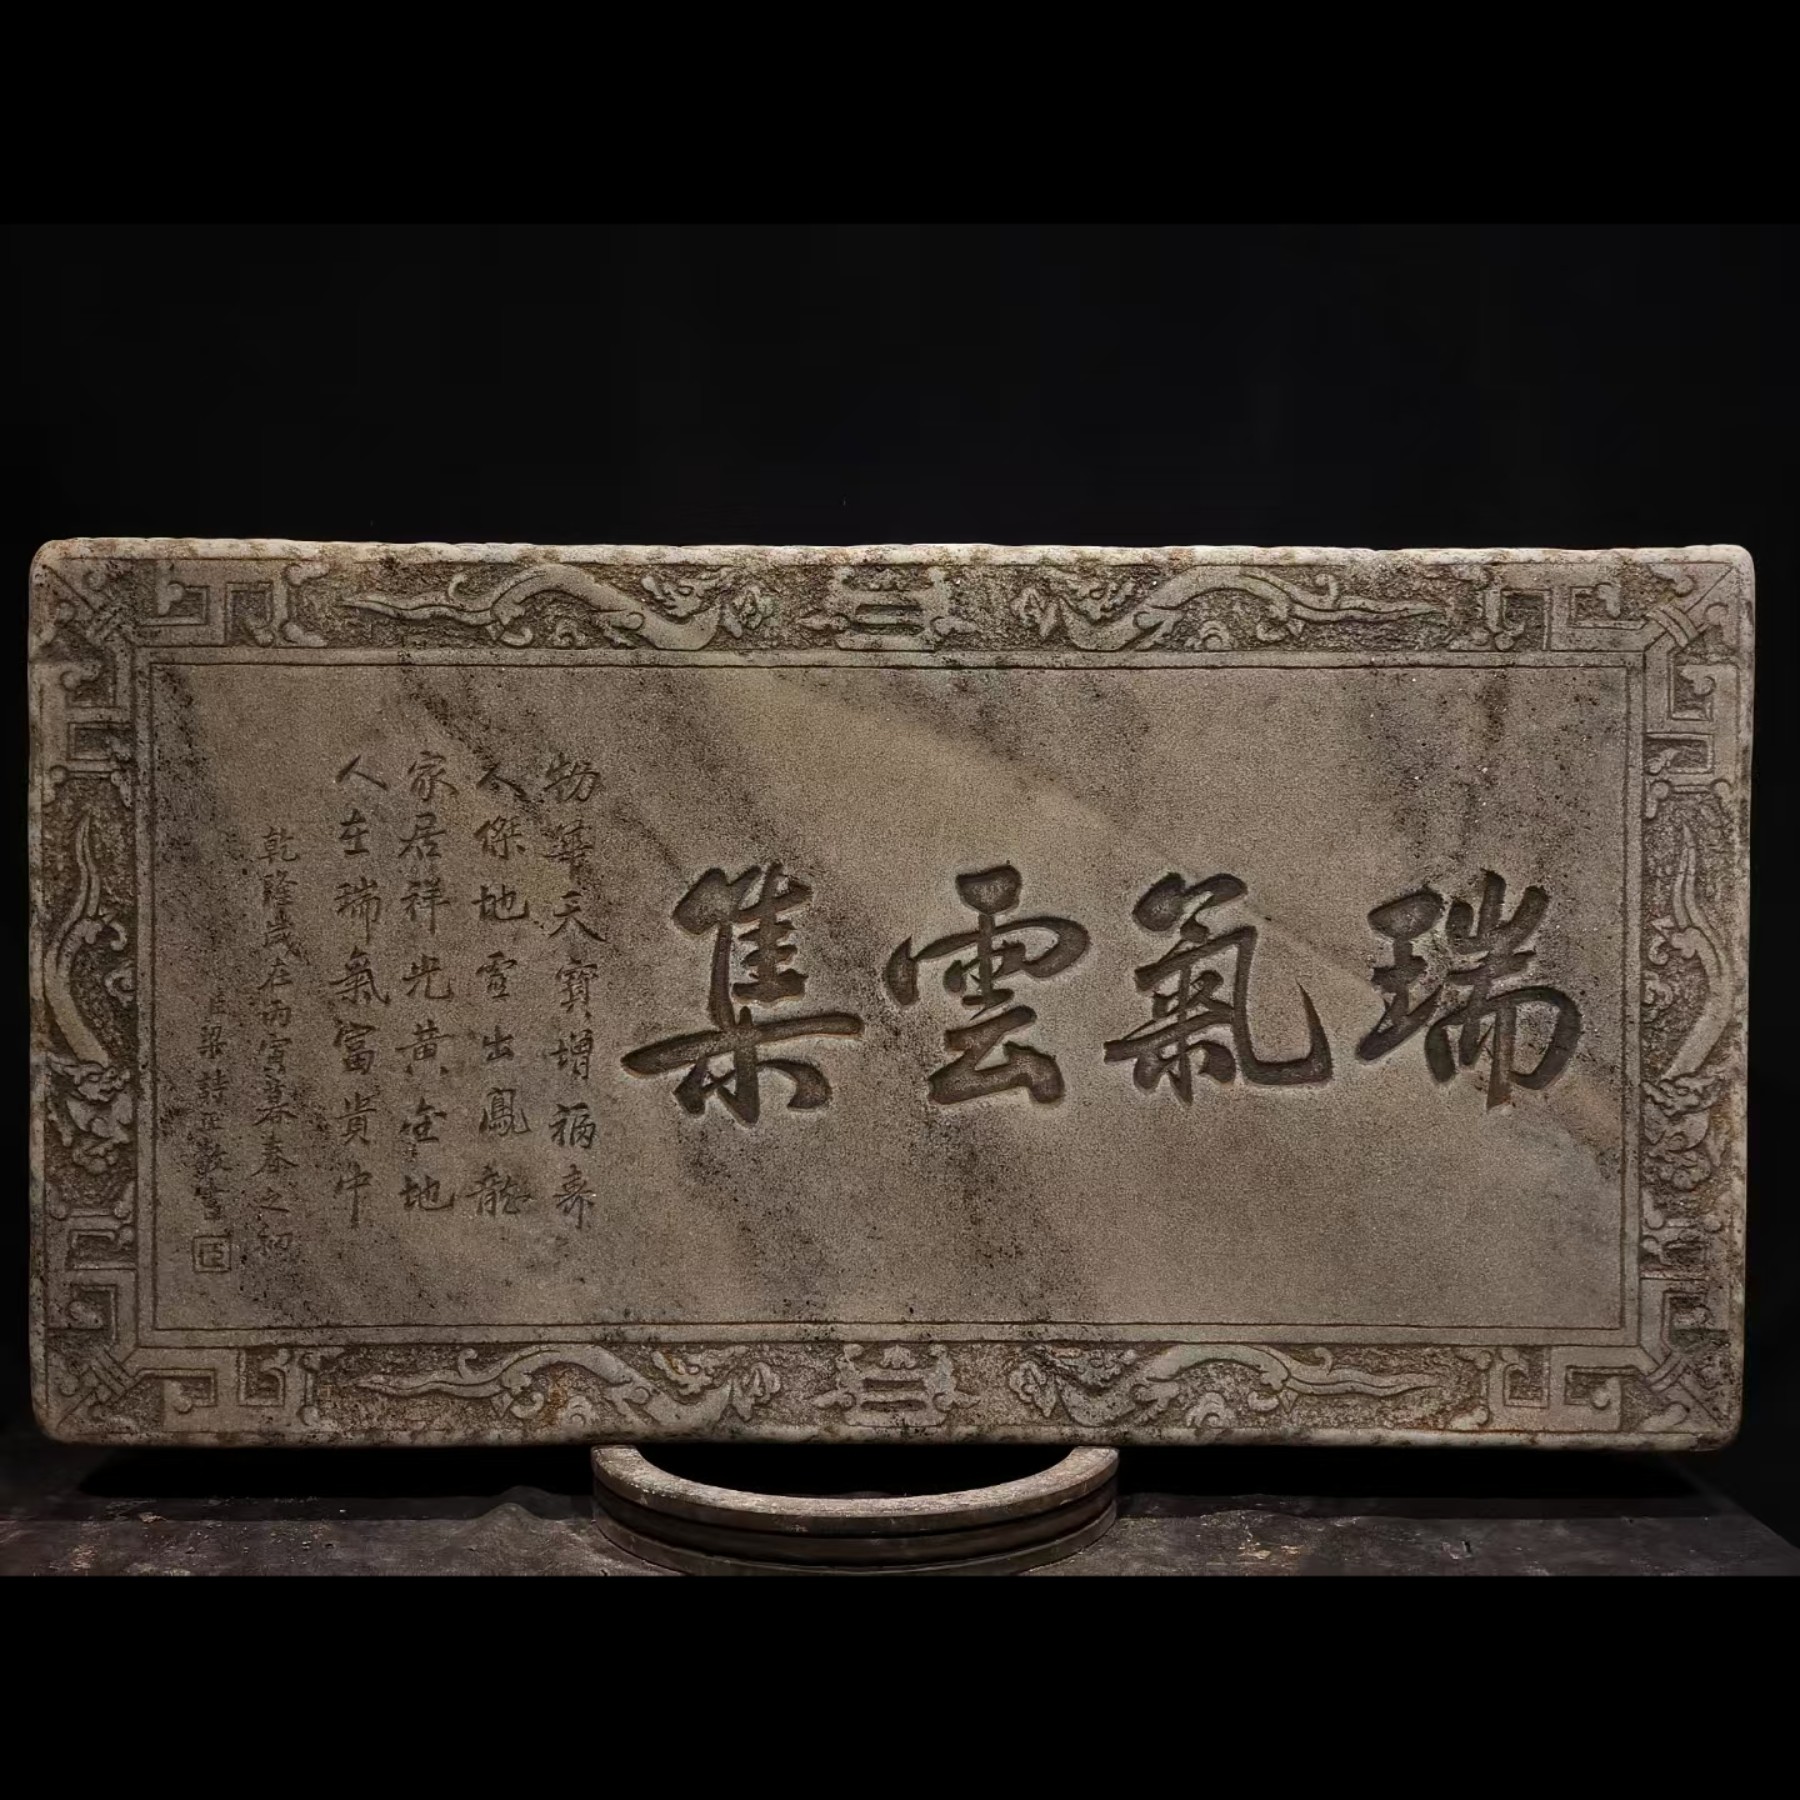 瑞氣雲集
物華天寶增福壽
人傑地靈出鳳龍
家居祥光黃金地
人在瑞氣富貴中
乾隆歲在丙寅暮春之初
臣梁詩正敬書
臣